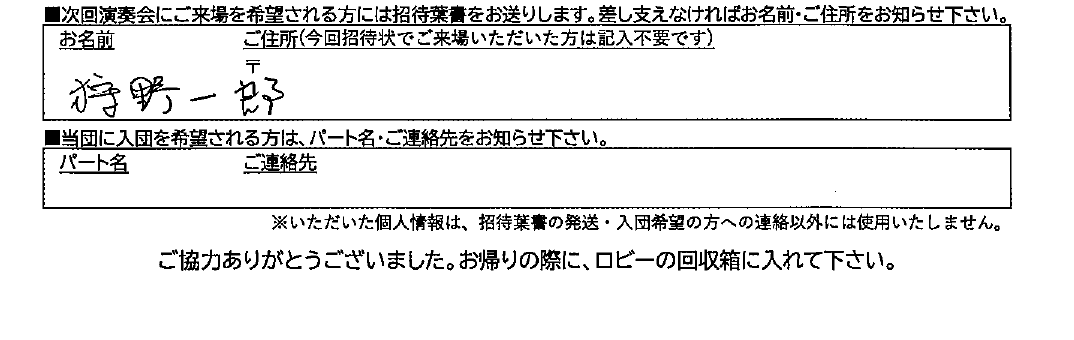 ■次回演奏会にご来場を希望される方には招待葉書をお送りします。差し支えなければお名前・ご住所をお知らせ下さい。
お名前 ご住所(今回招待状でご来場いただいた方は記入不要です)
〒
狩野一郎
■当団に入団を希望される方は、パート名・ご連絡先をお知らせ下さい。
パート名 ご連絡先
※いただいた個人情報は、招待葉書の発送・入団希望の方への連絡以外には使用いたしません。
ご協力ありがとうございました。お帰りの際に、ロビーの回収箱に入れて下さい。